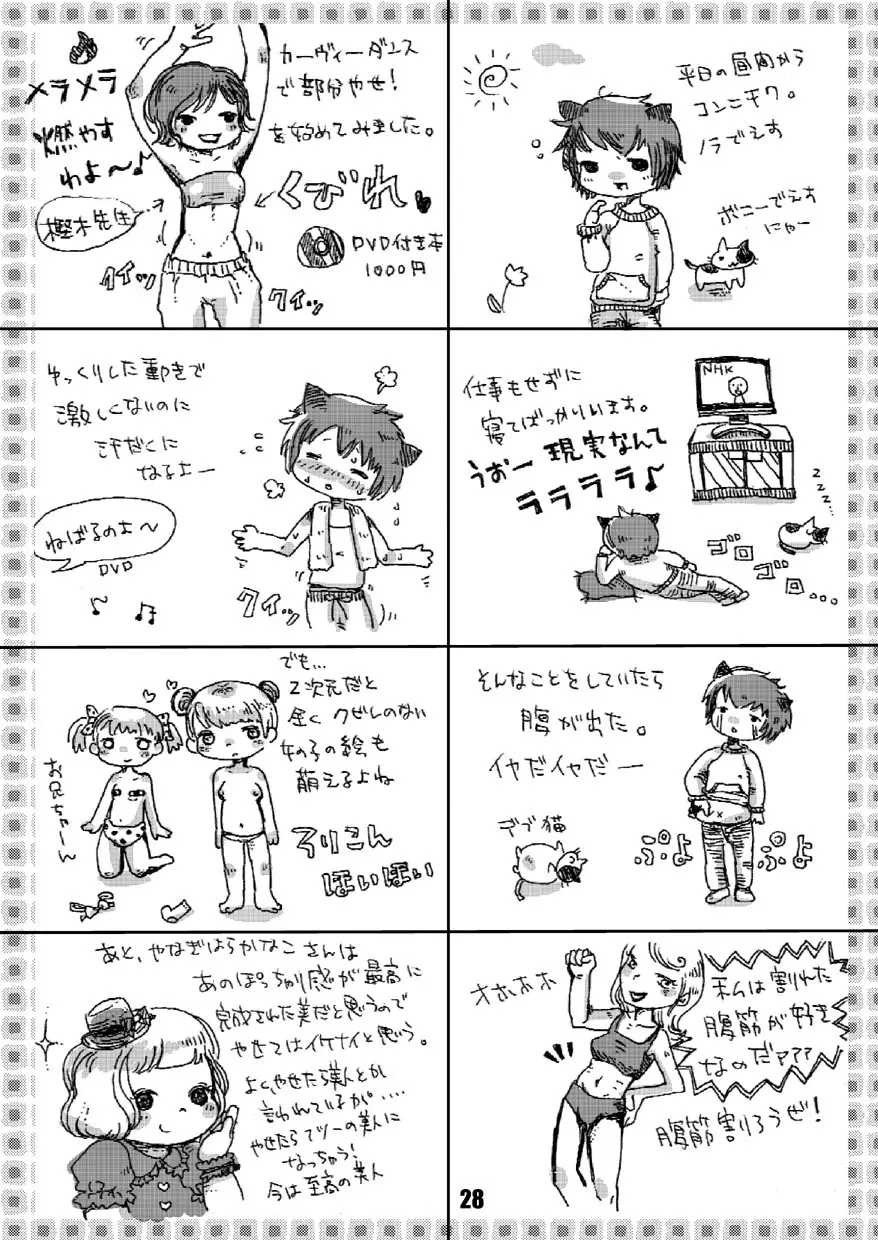 平日の昼間から
コンニチワ。
ノラでえす
ボニーでえす
にゃー
仕事もせずに
寝てばっかりいます。
うおー 現実なんて
ララララ♪
NHK
zzz...
ゴロ
ゴロ...
そんなことをしていたら
腹が出た。
イヤだイヤだー
デブ猫
ぷよ
ぷよ
オホホホ
私は割れた
腹筋が好き
なのだァァァ
腹筋割ろうぜ!
メラメラ
燃やす
わよ〜♪
樫木先生
カーヴィーダンス
で部分やせ!
を始めてみました。
くびれ
DVD付き本
1000円
クイッ
クイッ
ゆっくりした動きで
激しくないのに
汗だくに
なるよー
ねばるのよ〜
DVD
クイッ
でも...
2次元だと
全くクビレのない
女の子の絵も
萌えるよね
ろりこん
ほいほい
お兄ちゃーん
あと、やなぎはらかなこさんは
あのぽっちゃり感が最高に
完成された美だと思うので
やせてはイケナイと思う。
よく、やせたら美人とか
言われているが....
やせたらフツーの美人に
なっちゃう!
今は至高の美人
28